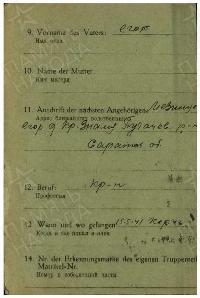 9. Vorname des Vaters: егор
Имя отца
10. Name der Mutter
Имя матери
11. Anschrift der nächsten Angehörigen
Адрес ближайших родственников
егор д
Саратов об.
12. Beruf: кр-н
Профессия
13 Wann und wo gefangen 15.5.42 Керчь
Когда и где попал в плен
14. Nr. der Erkennungsmarke des eigenen Truppenteil
Matrikel-Nr.
Номер в собственной части